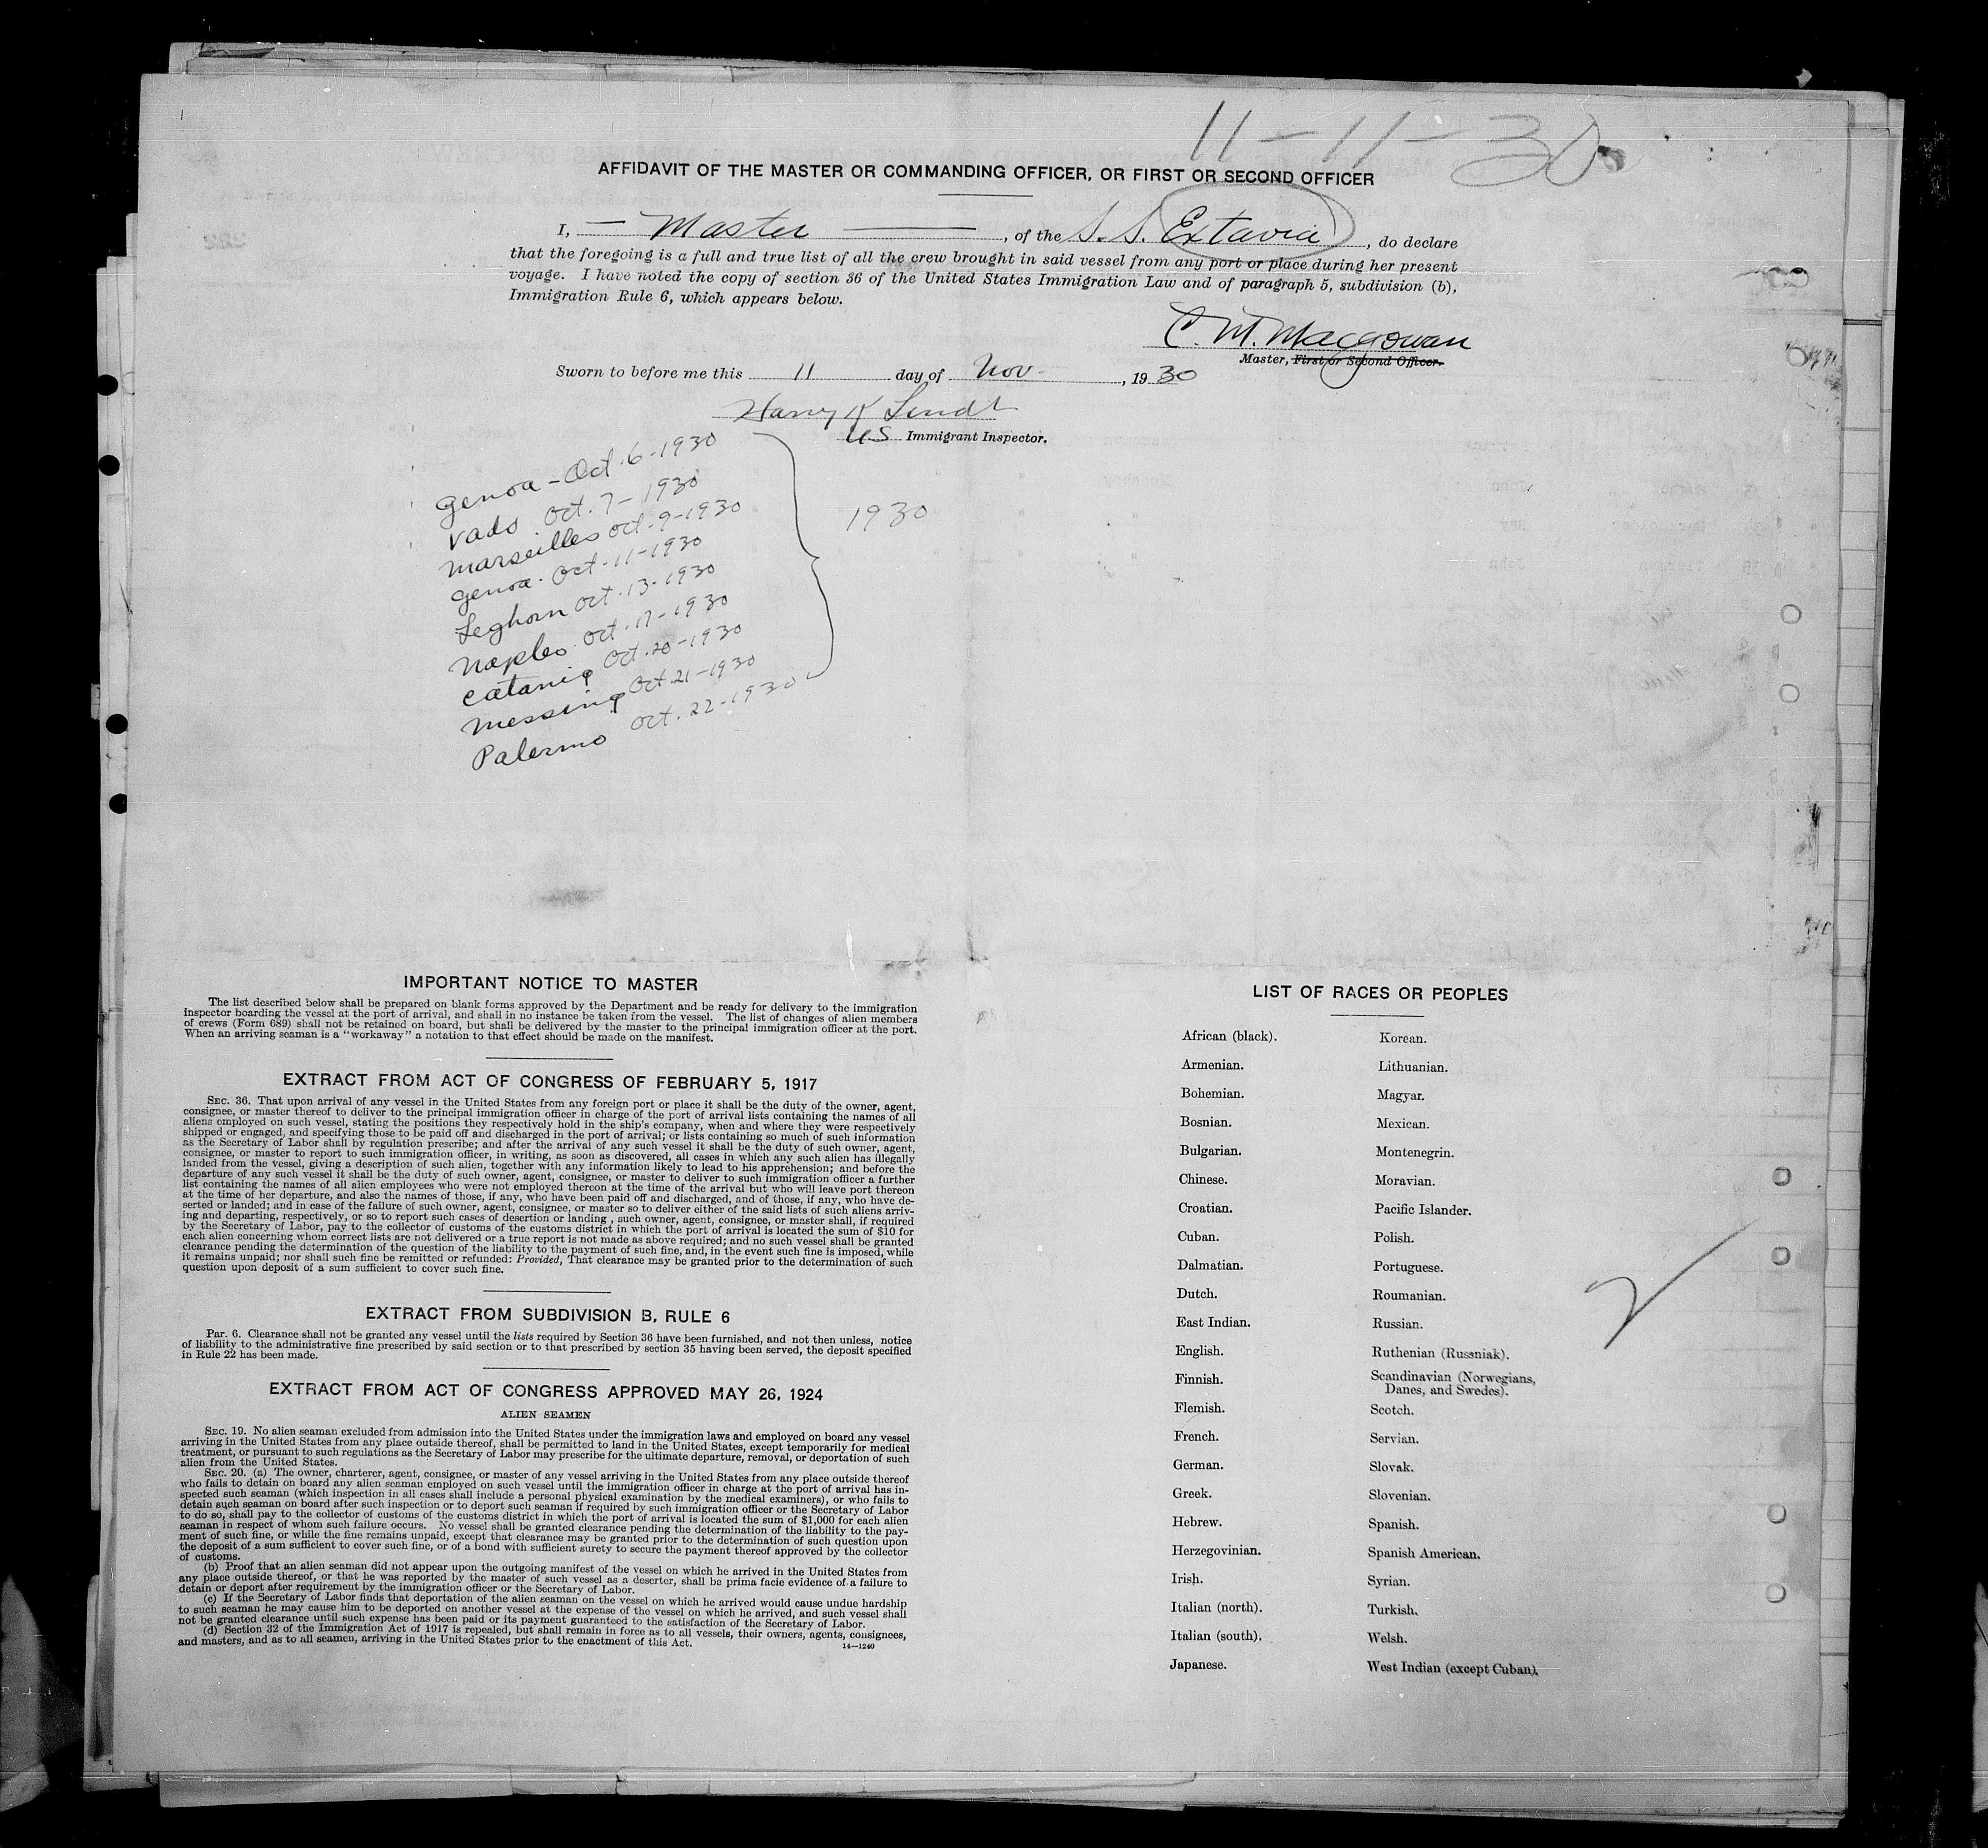 11-11-30
AFFIDAVIT OF THE MASTER OR COMMANDING OFFICER, OR FIRST OR SECOND OFFICER
I, Master, of the S.S. Extavia, do declare
that the foregoing is a full and true list of all the crew brought in said vessel from any port or place during her present
voyage. I have noted the copy of section 36 of the United States Immigration Law and of paragraph 5, subdivision (b),
Immigration Rule 6, which appears below.
C. M. Macgowan
Master, First or Second Officer.
Sworn to before me this 11 day of Nov-, 1930
Harry K
US Immigrant Inspector.
Genoa - Oct. 6-1930
Vado Oct. 7-1930
Marseilles Oct-9-1930
Genoa. Oct-11-1930
Leghorn Oct-13-1930
Naples Oct-17-1930
Catania Oct.20-1930
Messina Oct 21-1930
Palermo Oct. 22-1930
1930
IMPORTANT NOTICE TO MASTER
The list described below shall be prepared on blank forms approved by the Department and be ready for delivery to the immigration
inspector boarding the vessel at the port of arrival, and shall in no instance be taken from the vessel. The list of changes of alien members
of crews (Form 689) shall not be retained on board, but shall be delivered by the master to the principal immigration officer at the port.
When an arriving seaman is a "workaway" a notation to that effect should be made on the manifest.
EXTRACT FROM ACT OF CONGRESS OF FEBRUARY 5, 1917
SEC. 36. That upon arrival of any vessel in the United States from any foreign port or place it shall be the duty of the owner, agent,
consignee, or master thereof to deliver to the principal immigration officer in charge of the port of arrival lists containing the names of all
aliens employed on such vessel, stating the positions they respectively hold in the ship's company, when and where they were respectively
shipped or engaged, and specifying those to be paid off and discharged in the port of arrival; or lists containing so much of such information
as the Secretary of Labor shall by regulation prescribe; and after the arrival of any such vessel it shall be the duty of such owner, agent,
consignee, or master to report to such immigration officer, in writing, as soon as discovered, all cases in which any such alien has illegally
landed from the vessel, giving a description of such alien, together with any information likely to lead to his apprehension; and before the
departure of any such vessel it shall be the duty of such owner, agent, consignee, or master to deliver to such immigration officer a further
list containing the names of all alien employees who were not employed thereon at the time of the arrival but who will leave port thereon
at the time of her departure, and also the names of those, if any, who have been paid off and discharged, and of those, if any, who have de-
serted or landed; and in case of the failure of such owner, agent, consignee, or master so to deliver either of the said lists of such aliens arriv-
ing and departing, respectively, or so to report such cases of desertion or landing, such owner, agent, consignee, or master shall, if required
by the Secretary of Labor, pay to the collector of customs of the customs district in which the port of arrival is located the sum of $10 for
each alien concerning whom correct lists are not delivered or a true report is not made as above required; and no such vessel shall be granted
clearance pending the determination of the question of the liability to the payment of such fine, and, in the event such fine is imposed, while
it remains unpaid; nor shall such fine be remitted or refunded: Provided, That clearance may be granted prior to the determination of such
question upon deposit of a sum sufficient to cover such fine.
EXTRACT FROM SUBDIVISION B, RULE 6
Par. 6. Clearance shall not be granted any vessel until the lists required by Section 36 have been furnished, and not then unless, notice
of liability to the administrative fine prescribed by said section or to that prescribed by section 35 having been served, the deposit specified
in Rule 22 has been made.
EXTRACT FROM ACT OF CONGRESS APPROVED MAY 26, 1924
ALIEN SEAMEN
SEC. 19. No alien seaman excluded from admission into the United States under the immigration laws and employed on board any vessel
arriving in the United States from any place outside thereof, shall be permitted to land in the United States, except temporarily for medical
treatment, or pursuant to such regulations as the Secretary of Labor may prescribe for the ultimate departure, removal, or deportation of such
alien from the United States.
SEC. 20. (a) The owner, charterer, agent, consignee, or master of any vessel arriving in the United States from any place outside thereof
who fails to detain on board any alien seaman employed on such vessel until the immigration officer in charge at the port of arrival has in-
spected such seaman (which inspection in all cases shall include a personal physical examination by the medical examiners), or who fails to
detain such seaman on board after such inspection or to deport such seaman if required by such immigration officer or the Secretary of Labor
to do so, shall pay to the collector of customs of the customs district in which the port of arrival is located the sum of $1,000 for each alien
seaman in respect of whom such failure occurs. No vessel shall be granted clearance pending the determination of the liability to the pay-
ment of such fine, or while the fine remains unpaid, except that clearance may be granted prior to the determination of such question upon
the deposit of a sum sufficient to cover such fine, or of a bond with sufficient surety to secure the payment thereof approved by the collector
of customs.
(b) Proof that an alien seaman did not appear upon the outgoing manifest of the vessel on which he arrived in the United States from
any place outside thereof, or that he was reported by the master of such vessel as a deserter, shall be prima facie evidence of a failure to
detain or deport after requirement by the immigration officer or the Secretary of Labor.
(c) If the Secretary of Labor finds that deportation of the alien seaman on the vessel on which he arrived would cause undue hardship
to such seaman he may cause him to be deported on another vessel at the expense of the vessel on which he arrived, and such vessel shall
not be granted clearance until such expense has been paid or its payment guaranteed to the satisfaction of the Secretary of Labor.
(d) Section 32 of the Immigration Act of 1917 is repealed, but shall remain in force as to all vessels, their owners, agents, consignees,
and masters, and as to all seamen, arriving in the United States prior to the enactment of this Act.
14—1240
LIST OF RACES OR PEOPLES
African (black).
Armenian.
Bohemian.
Bosnian.
Bulgarian.
Chinese.
Croatian.
Cuban.
Dalmatian.
Dutch.
East Indian.
English.
Finnish.
Flemish.
French.
German.
Greek.
Hebrew.
Herzegovinian.
Irish.
Italian (north).
Italian (south).
Japanese.
Korean.
Lithuanian.
Magyar.
Mexican.
Montenegrin.
Moravian.
Pacific Islander.
Polish.
Portuguese.
Roumanian.
Russian.
Ruthenian (Russniak).
Scandinavian (Norwegians,
Danes, and Swedes).
Scotch.
Servian.
Slovak.
Slovenian.
Spanish.
Spanish American.
Syrian.
Turkish.
Welsh.
West Indian (except Cuban).